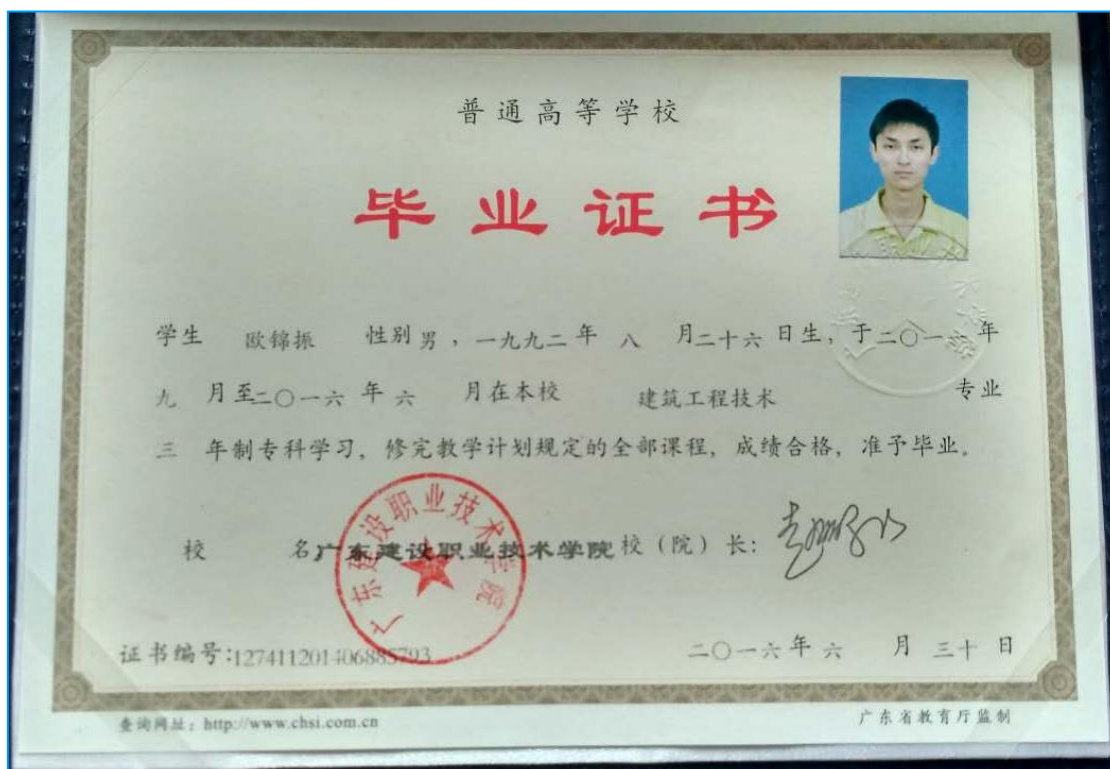 普通高等学校
毕业证书
学生 欧锦振 性别 男，一九九二年 八 月二十六日生，于二〇一一年
九 月至二〇一六年 六 月在本校 建筑工程技术 专业
三 年制专科学习，修完教学计划规定的全部课程，成绩合格，准予毕业。
校 名 广东建设职业技术学院 校（院）长：
广东建设职业技术学院
证书编号：127411201406885793
二〇一六年 六 月 三十 日
查询网址：http://www.chsi.com.cn
广东省教育厅监制